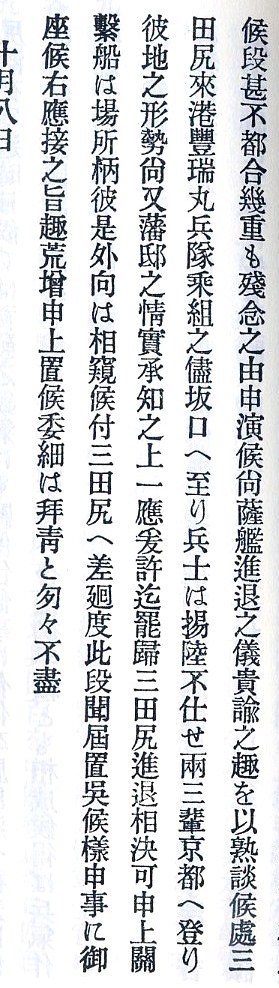 候段甚不都合幾重も殘念之由申演候尙薩艦進退之儀貴諭之趣を以熟談候處三
田尻來港豐瑞丸兵隊乘組之儘坂口へ至り兵士は揚陸不仕せ兩三輩京都へ登り
彼地之形勢尙又藩邸之情實承知之上一應爰許迄罷歸三田尻進退相決可申上關
繫船は場所柄彼是外向は相窺候付三田尻へ差廻度此段聞屆置吳候樣申事に御
座候右應接之旨趣荒增申上置候委細は拜靑と匆々不盡
十月八日